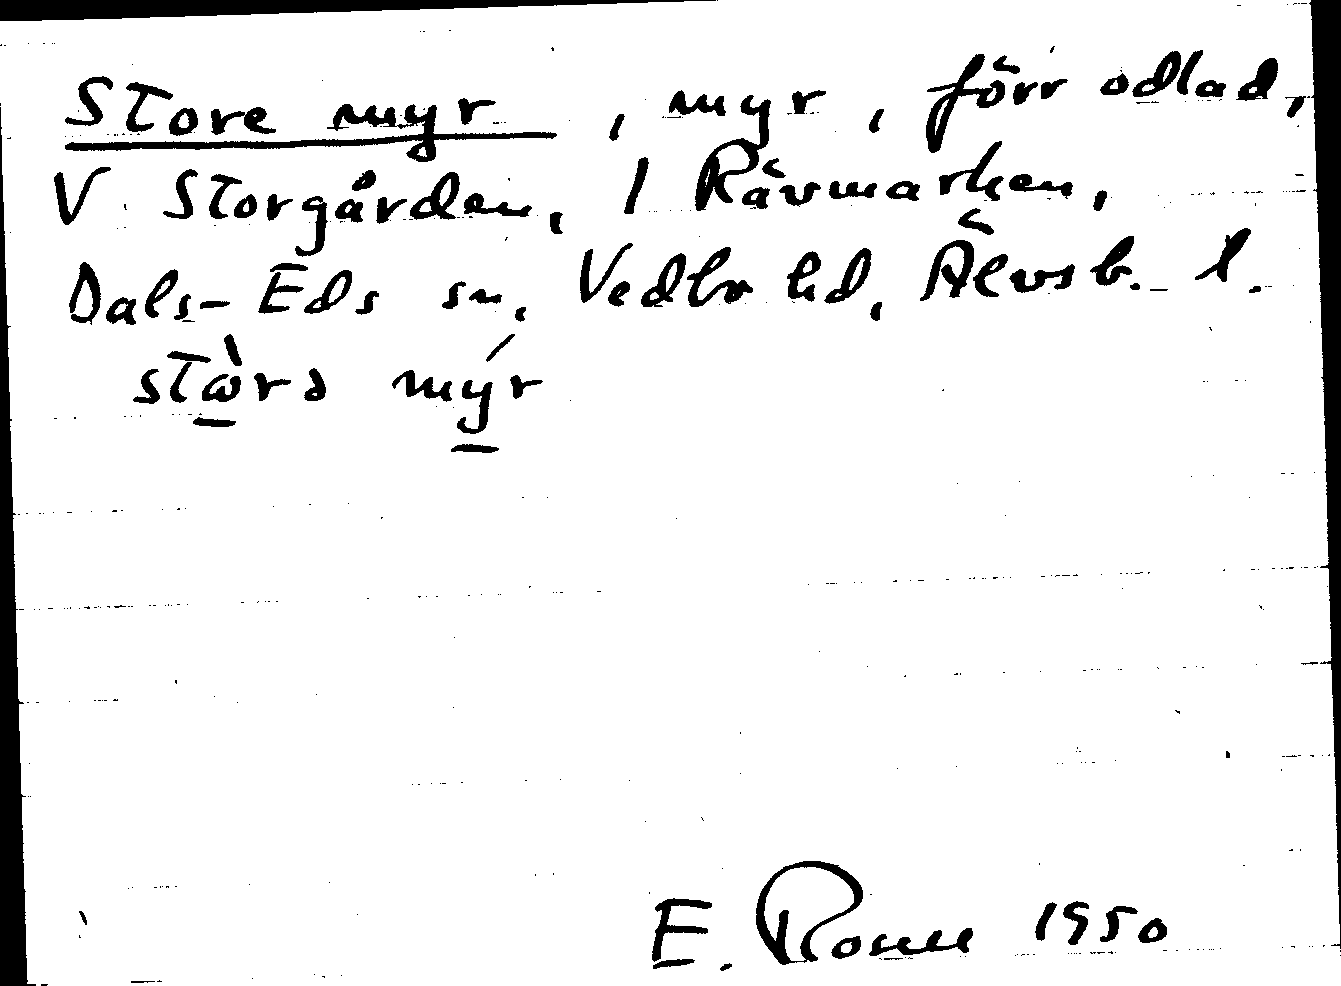 Store myr, myr, förr odlad,
V Storgården, 1 Rävmarken,
Dals-Eds sn, Vedbo hd, Älvsb. l.
stɷ̱̀rə mý̱r
E. Rosell 1950